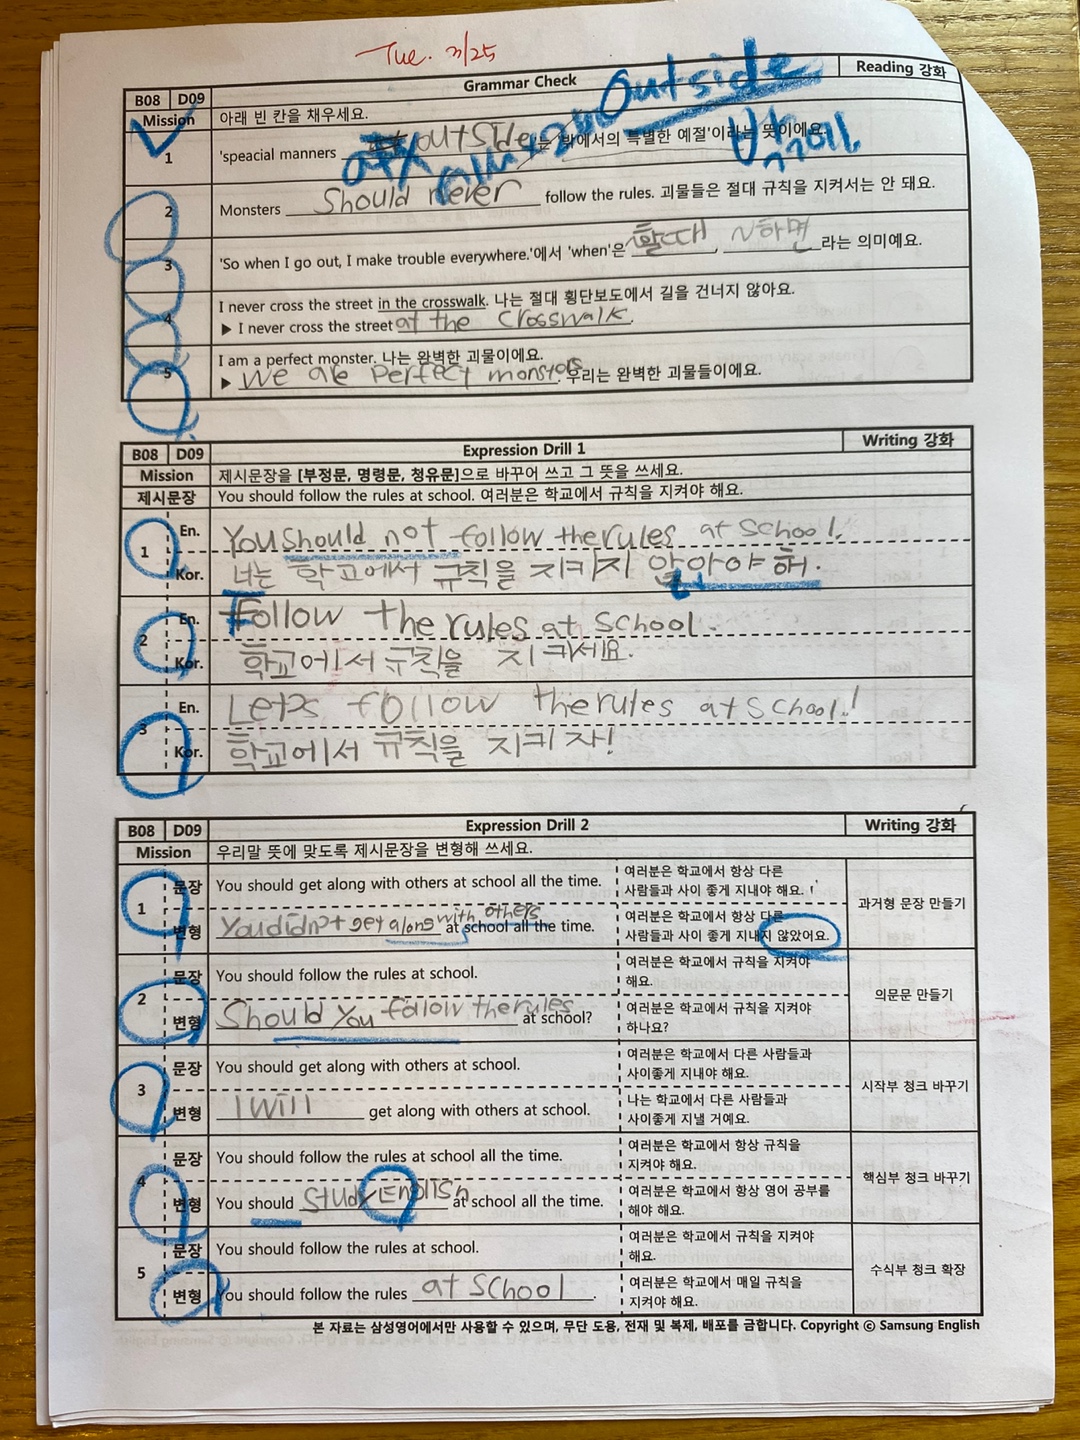 Tue. 7/25
B08 D09 Grammar Check Reading 강화
Mission 아래 빈 칸을 채우세요.
Outside
1 'speacial manners outside'는 '밖에서의 특별한 예절'이라는 뜻이에요.
밖에
2 Monsters Should never follow the rules. 괴물들은 절대 규칙을 지켜서는 안 돼요.
3 'So when I go out, I make trouble everywhere.'에서 'when'은 할때, ~하면 라는 의미예요.
4 I never cross the street in the crosswalk. 나는 절대 횡단보도에서 길을 건너지 않아요.
▶ I never cross the street at the crosswalk.
5 I am a perfect monster. 나는 완벽한 괴물이에요.
▶ We are perfect monstors. 우리는 완벽한 괴물들이에요.
B08 D09 Expression Drill 1 Writing 강화
Mission 제시문장을 [부정문, 명령문, 청유문]으로 바꾸어 쓰고 그 뜻을 쓰세요.
제시문장 You should follow the rules at school. 여러분은 학교에서 규칙을 지켜야 해요.
1 En. You should not follow the rules at school.
Kor. 너는 학교에서 규칙을 지키지 않아야 해.
2 En. Follow the rules at school.
Kor. 학교에서 규칙을 지키세요.
3 En. Let's follow the rules at school.!
Kor. 학교에서 규칙을 지키자!
B08 D09 Expression Drill 2 Writing 강화
Mission 우리말 뜻에 맞도록 제시문장을 변형해 쓰세요.
1 문장 You should get along with others at school all the time. 여러분은 학교에서 항상 다른
사람들과 사이 좋게 지내야 해요. 과거형 문장 만들기
변형 You didn't get along with others at school all the time. 여러분은 학교에서 항상 다른
사람들과 사이 좋게 지내지 않았어요.
2 문장 You should follow the rules at school. 여러분은 학교에서 규칙을 지켜야
해요. 의문문 만들기
변형 Should You follow the rules at school? 여러분은 학교에서 규칙을 지켜야
하나요?
3 문장 You should get along with others at school. 여러분은 학교에서 다른 사람들과
사이좋게 지내야 해요. 시작부 청크 바꾸기
변형 I will get along with others at school. 나는 학교에서 다른 사람들과
사이좋게 지낼 거예요.
4 문장 You should follow the rules at school all the time. 여러분은 학교에서 항상 규칙을
지켜야 해요. 핵심부 청크 바꾸기
변형 You should study English at school all the time. 여러분은 학교에서 항상 영어 공부를
해야 해요.
5 문장 You should follow the rules at school. 여러분은 학교에서 규칙을 지켜야
해요. 수식부 청크 확장
변형 You should follow the rules at school. 여러분은 학교에서 매일 규칙을
지켜야 해요.
본 자료는 삼성영어에서만 사용할 수 있으며, 무단 도용, 전재 및 복제, 배포를 금합니다. Copyright ⓒ Samsung English